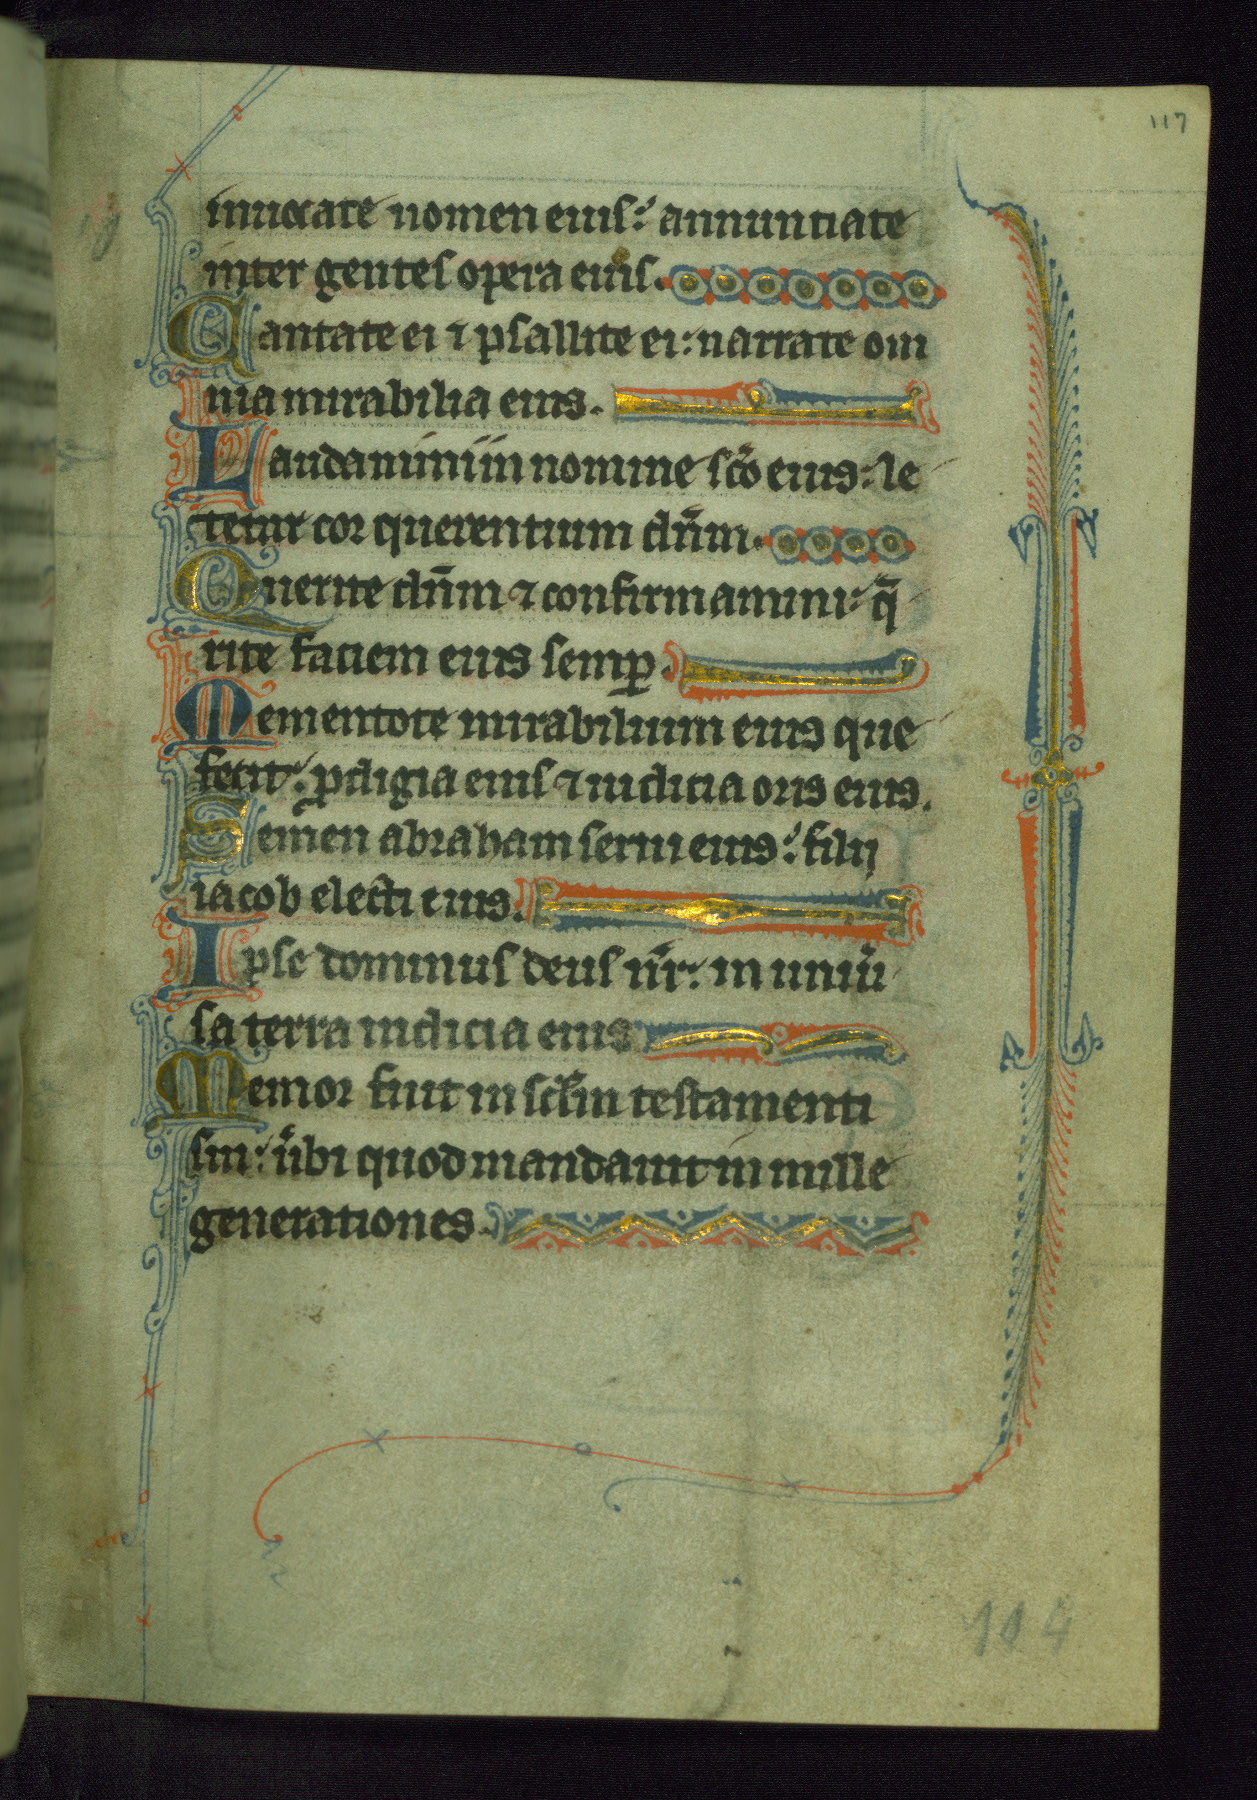 117
inuocate nomen eius: annuntiate
inter gentes opera eius.
Cantate ei ⁊ psallite ei: narrate om
nia mirabilia eius.
Laudamini in nomine sc̄o eius: le
tetur cor querentium dn̄m.
Querite dn̄m ⁊ confirmamini: q̄
rite faciem eius semꝑ.
Mementote mirabilium eius que
fecit: ꝓdigia eius ⁊ iudicia oris eius.
Semen abraham serui eius: filij
iacob electi eius.
Ipse dominus deus nr̄: in uniũ
sa terra iudicia eius
Memor fuit in sc̄lm testamenti
sui: ũbi quod mandauit in mille
generationes.
104